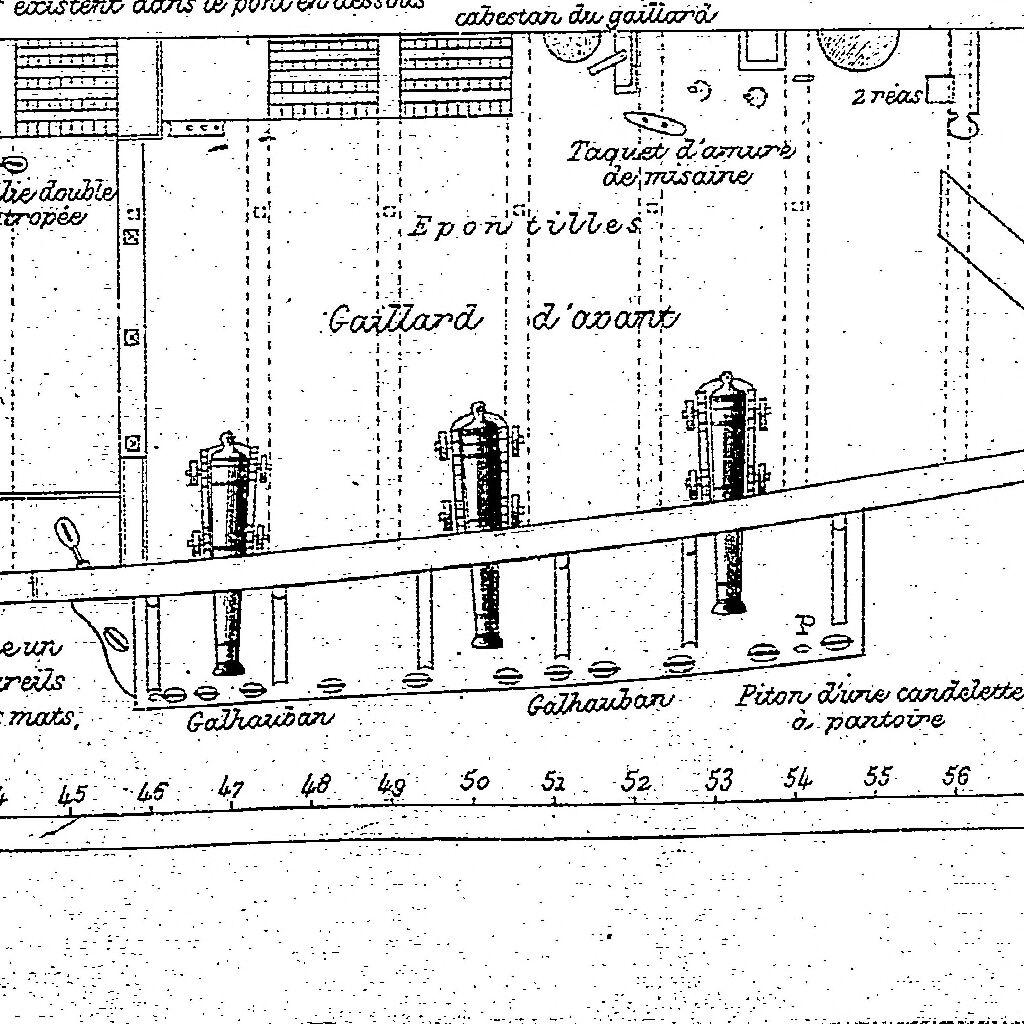 existent dans le pont en dessous
cabestan du gaillard
2 réas
Taquet d'amure
de misaine
lie double
tropée
Epontilles
Gaillard d'avant
e un
reils
s mats,
Galhauban
Galhauban
Piton d'une candelette
à pantoire
4 45 46 47 48 49 50 51 52 53 54 55 56